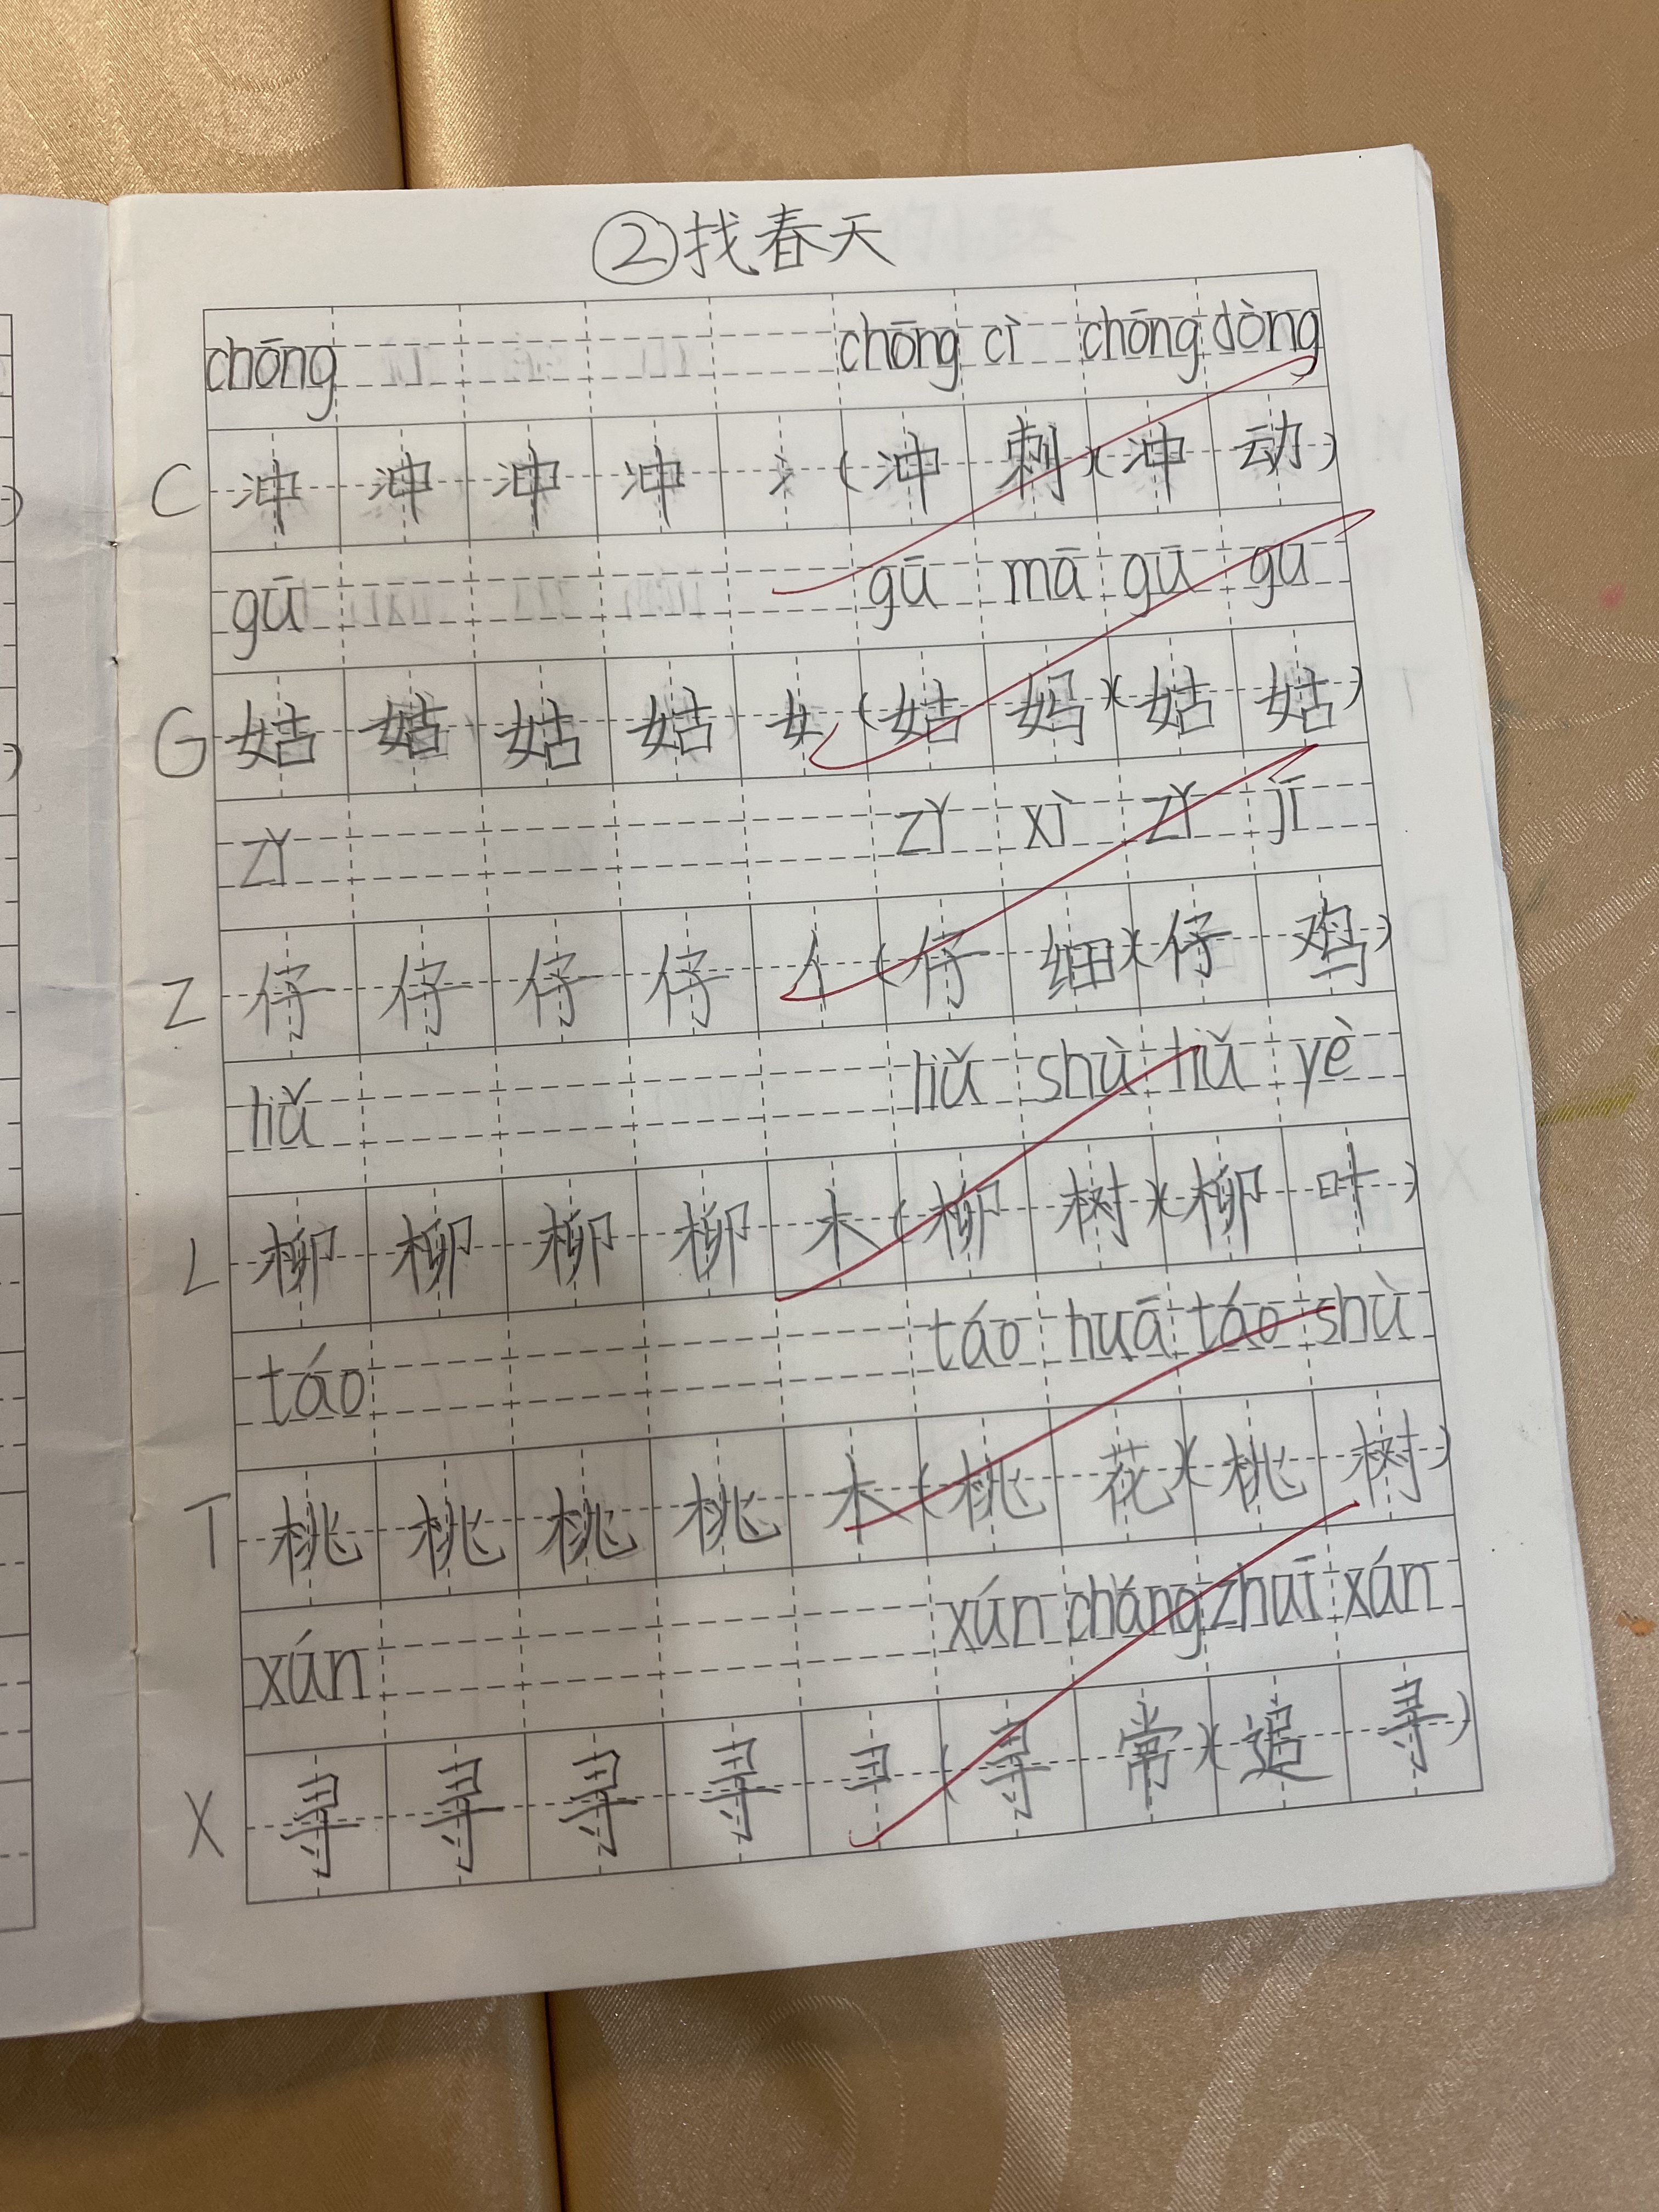 ②找春天
chōng chōng cì chōng dòng
C 冲 冲 冲 冲 冫 (冲 刺)(冲 动)
gū gū mā gū gu
G 姑 姑 姑 姑 女 (姑 妈)(姑 姑)
zǐ zǐ xì zǐ jī
Z 仔 仔 仔 仔 亻 (仔 细)(仔 鸡)
liǔ liǔ shù liǔ yè
L 柳 柳 柳 柳 木 (柳 树)(柳 叶)
táo táo huā táo shù
T 桃 桃 桃 桃 木 (桃 花)(桃 树)
xún xún cháng zhuī xún
X 寻 寻 寻 寻 彐 (寻 常)(追 寻)